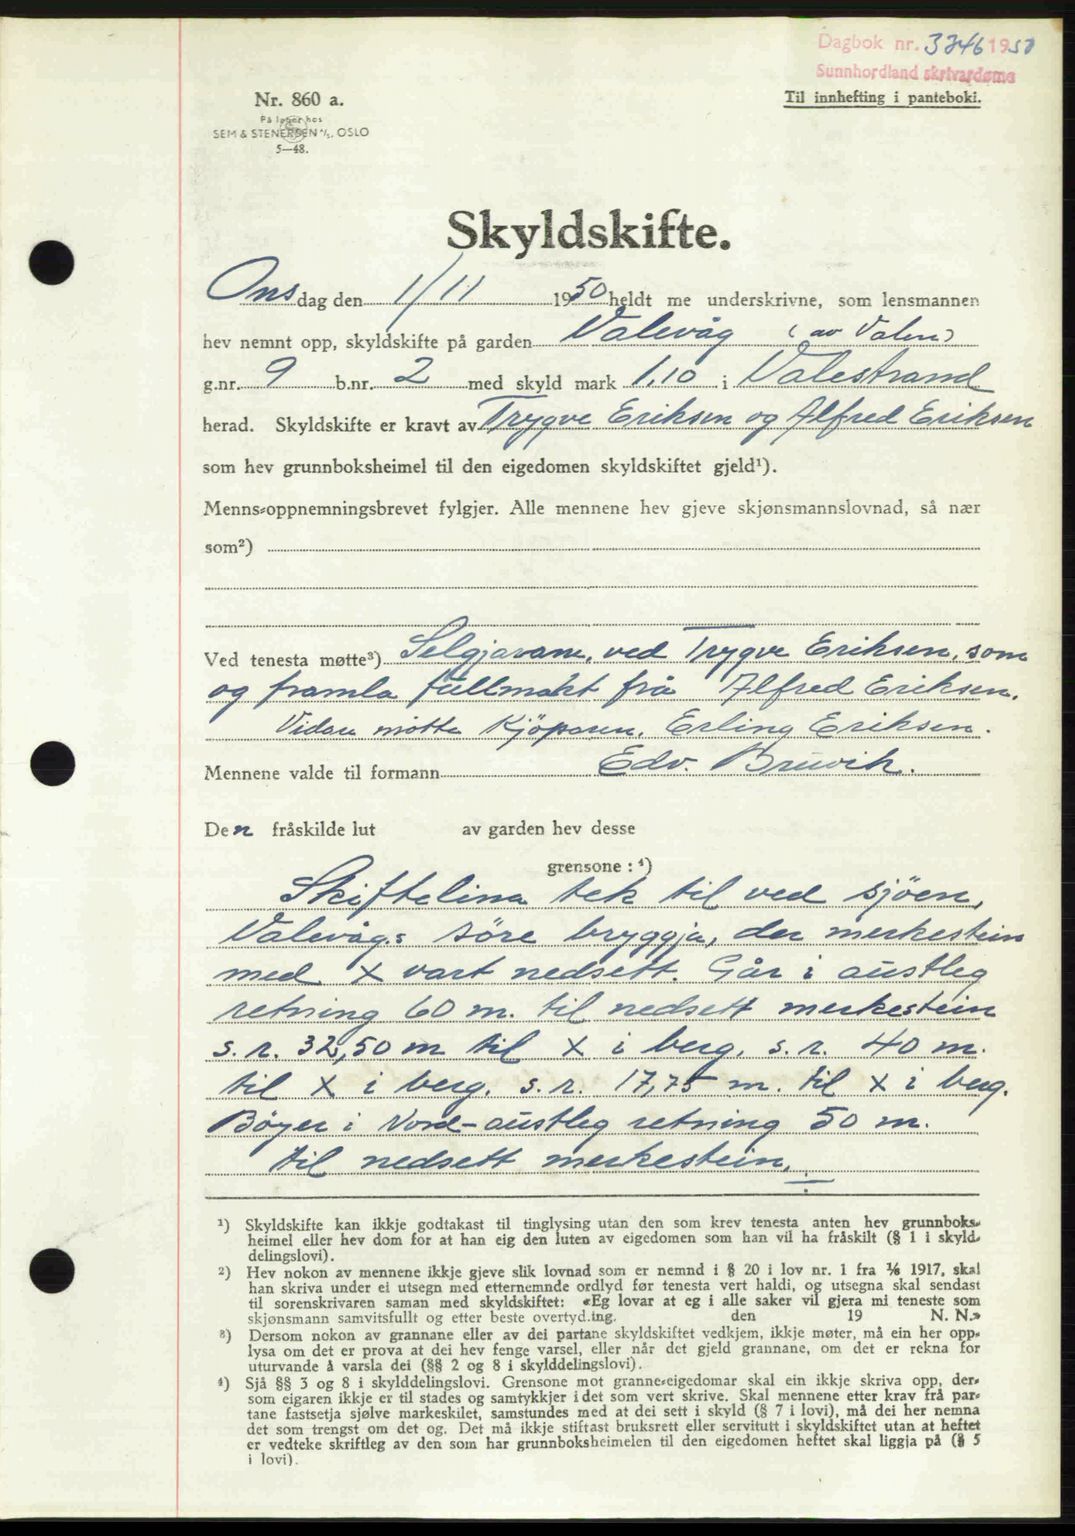 Dagbok nr. 3346 1950
Sunnhordland skrivardøme
Nr. 860 a.
På lager hos
SEM & STENERSEN A/S, OSLO
5—48.
Til innhefting i panteboki.
Skyldskifte.
Onsdag den 1/11 1950 heldt me underskrivne, som lensmannen
hev nemnt opp, skyldskifte på garden Valevåg (av Valen)
g.nr. 9 b.nr. 2 med skyld mark 1,10 i Valestrand
herad. Skyldskifte er kravt av Trygve Eriksen og Alfred Eriksen
som hev grunnboksheimel til den eigedomen skyldskiftet gjeld¹).
Menns-oppnemningsbrevet fylgjer. Alle mennene hev gjeve skjønsmannslovnad, så nær
som²)
Ved tenesta møtte³) Selgjarane, ved Trygve Eriksen, som
og framla fullmakt frå Alfred Eriksen.
Vidare møtte Kjöparen, Erling Eriksen.
Mennene valde til formann Edv. Bruvik.
Den fråskilde lut av garden hev desse
grensone : ⁴)
Skiftelina tek til ved sjöen,
Valevåg.s söre bryggja, der merkestein
med X vart nedsett. Går i austleg
retning 60 m. til nedsett merkestein
s. r. 32,50 m til X i berg, s. r. 40 m.
til X i berg, s. r. 17,75 m. til X i berg.
Bøyer i Nord-austleg retning 50 m.
til nedsett merkestein.
¹) Skyldskifte kan ikkje godtakast til tinglysing utan den som krev tenesta anten hev grunnboks-
heimel eller hev dom for at han eig den luten av eigedomen som han vil ha fråskilt (§ 1 i skyld-
delingslovi).
²) Hev nokon av mennene ikkje gjeve slik lovnad som er nemnd i § 20 i lov nr. 1 fra 1/6 1917, skal
han skriva under ei utsegn med etternemnde ordlyd før tenesta vert haldi, og utsegna skal sendast
til sorenskrivaren saman med skyldskiftet: «Eg lovar at eg i alle saker vil gjera mi teneste som
skjønsmann samvitsfullt og etter beste overtyding. den 19 N. N.»
³) Dersom nokon av grannane eller av dei partane skyldskiftet vedkjem, ikkje møter, må ein her opp-
lysa om det er prova at dei hev fenge varsel, eller når det gjeld grannane, om det er rekna for
uturvande å varsla dei (§§ 2 og 8 i skylddelingslovi).
⁴) Sjå §§ 3 og 8 i skylddelingslovi. Grensone mot granne-eigedomar skal ein ikkje skriva opp, der-
som eigaren ikkje er til stades og samtykkjer i det som vert skrive. Skal mennene etter krav frå par-
tane fastsetja sjølve markeskilet, samstundes med at dei sett i skyld (§ 7 i lovi), må dei her nemna
det som trengst om det og. Det må ikkje stiftast bruksrett eller servitutt i skyldskiftet utan at heftet
er vedteke skriftleg av den som har grunnboksheimelen til den eigedomen heftet skal liggja på (§ 5
i lovi).